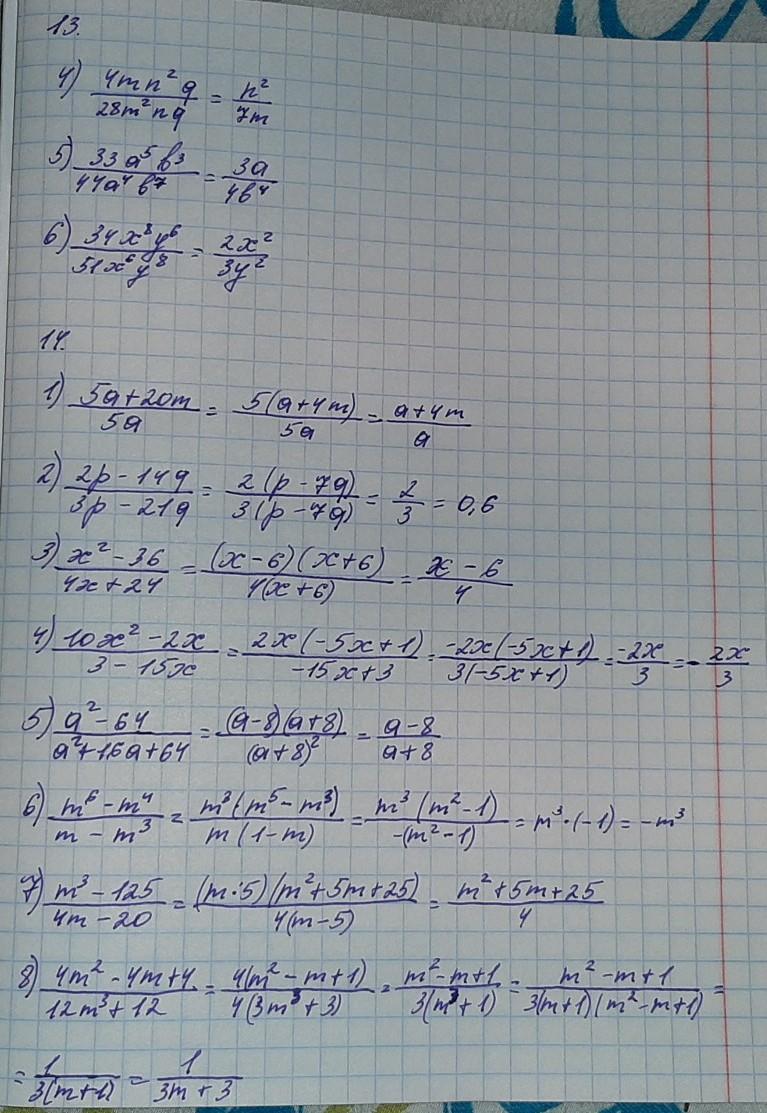 13.
4) 4mn²q / 28m²nq = n² / 7m
5) 33a⁵b³ / 44a⁴b⁷ = 3a / 4b⁴
6) 34x⁸y⁶ / 51x⁶y⁸ = 2x² / 3y²
14.
1) 5a+20m / 5a = 5(a+4m) / 5a = a+4m / a
2) 2p-14q / 3p-21q = 2(p-7q) / 3(p-7q) = 2/3 = 0,6
3) x²-36 / 4x+24 = (x-6)(x+6) / 4(x+6) = x-6 / 4
4) 10x²-2x / 3-15x = 2x(-5x+1) / -15x+3 = -2x(-5x+1) / 3(-5x+1) = -2x / 3 = - 2x / 3
5) a²-64 / a²+16a+64 = (a-8)(a+8) / (a+8)² = a-8 / a+8
6) m⁶-m⁴ / m-m³ = m³(m⁵-m³) / m(1-m) = m³(m²-1) / -(m²-1) = m³·(-1) = -m³
7) m³-125 / 4m-20 = (m·5)(m²+5m+25) / 4(m-5) = m²+5m+25 / 4
8) 4m²-4m+4 / 12m³+12 = 4(m²-m+1) / 4(3m³+3) = m²-m+1 / 3(m³+1) = m²-m+1 / 3(m+1)(m²-m+1) =
= 1 / 3(m+1) = 1 / 3m+3